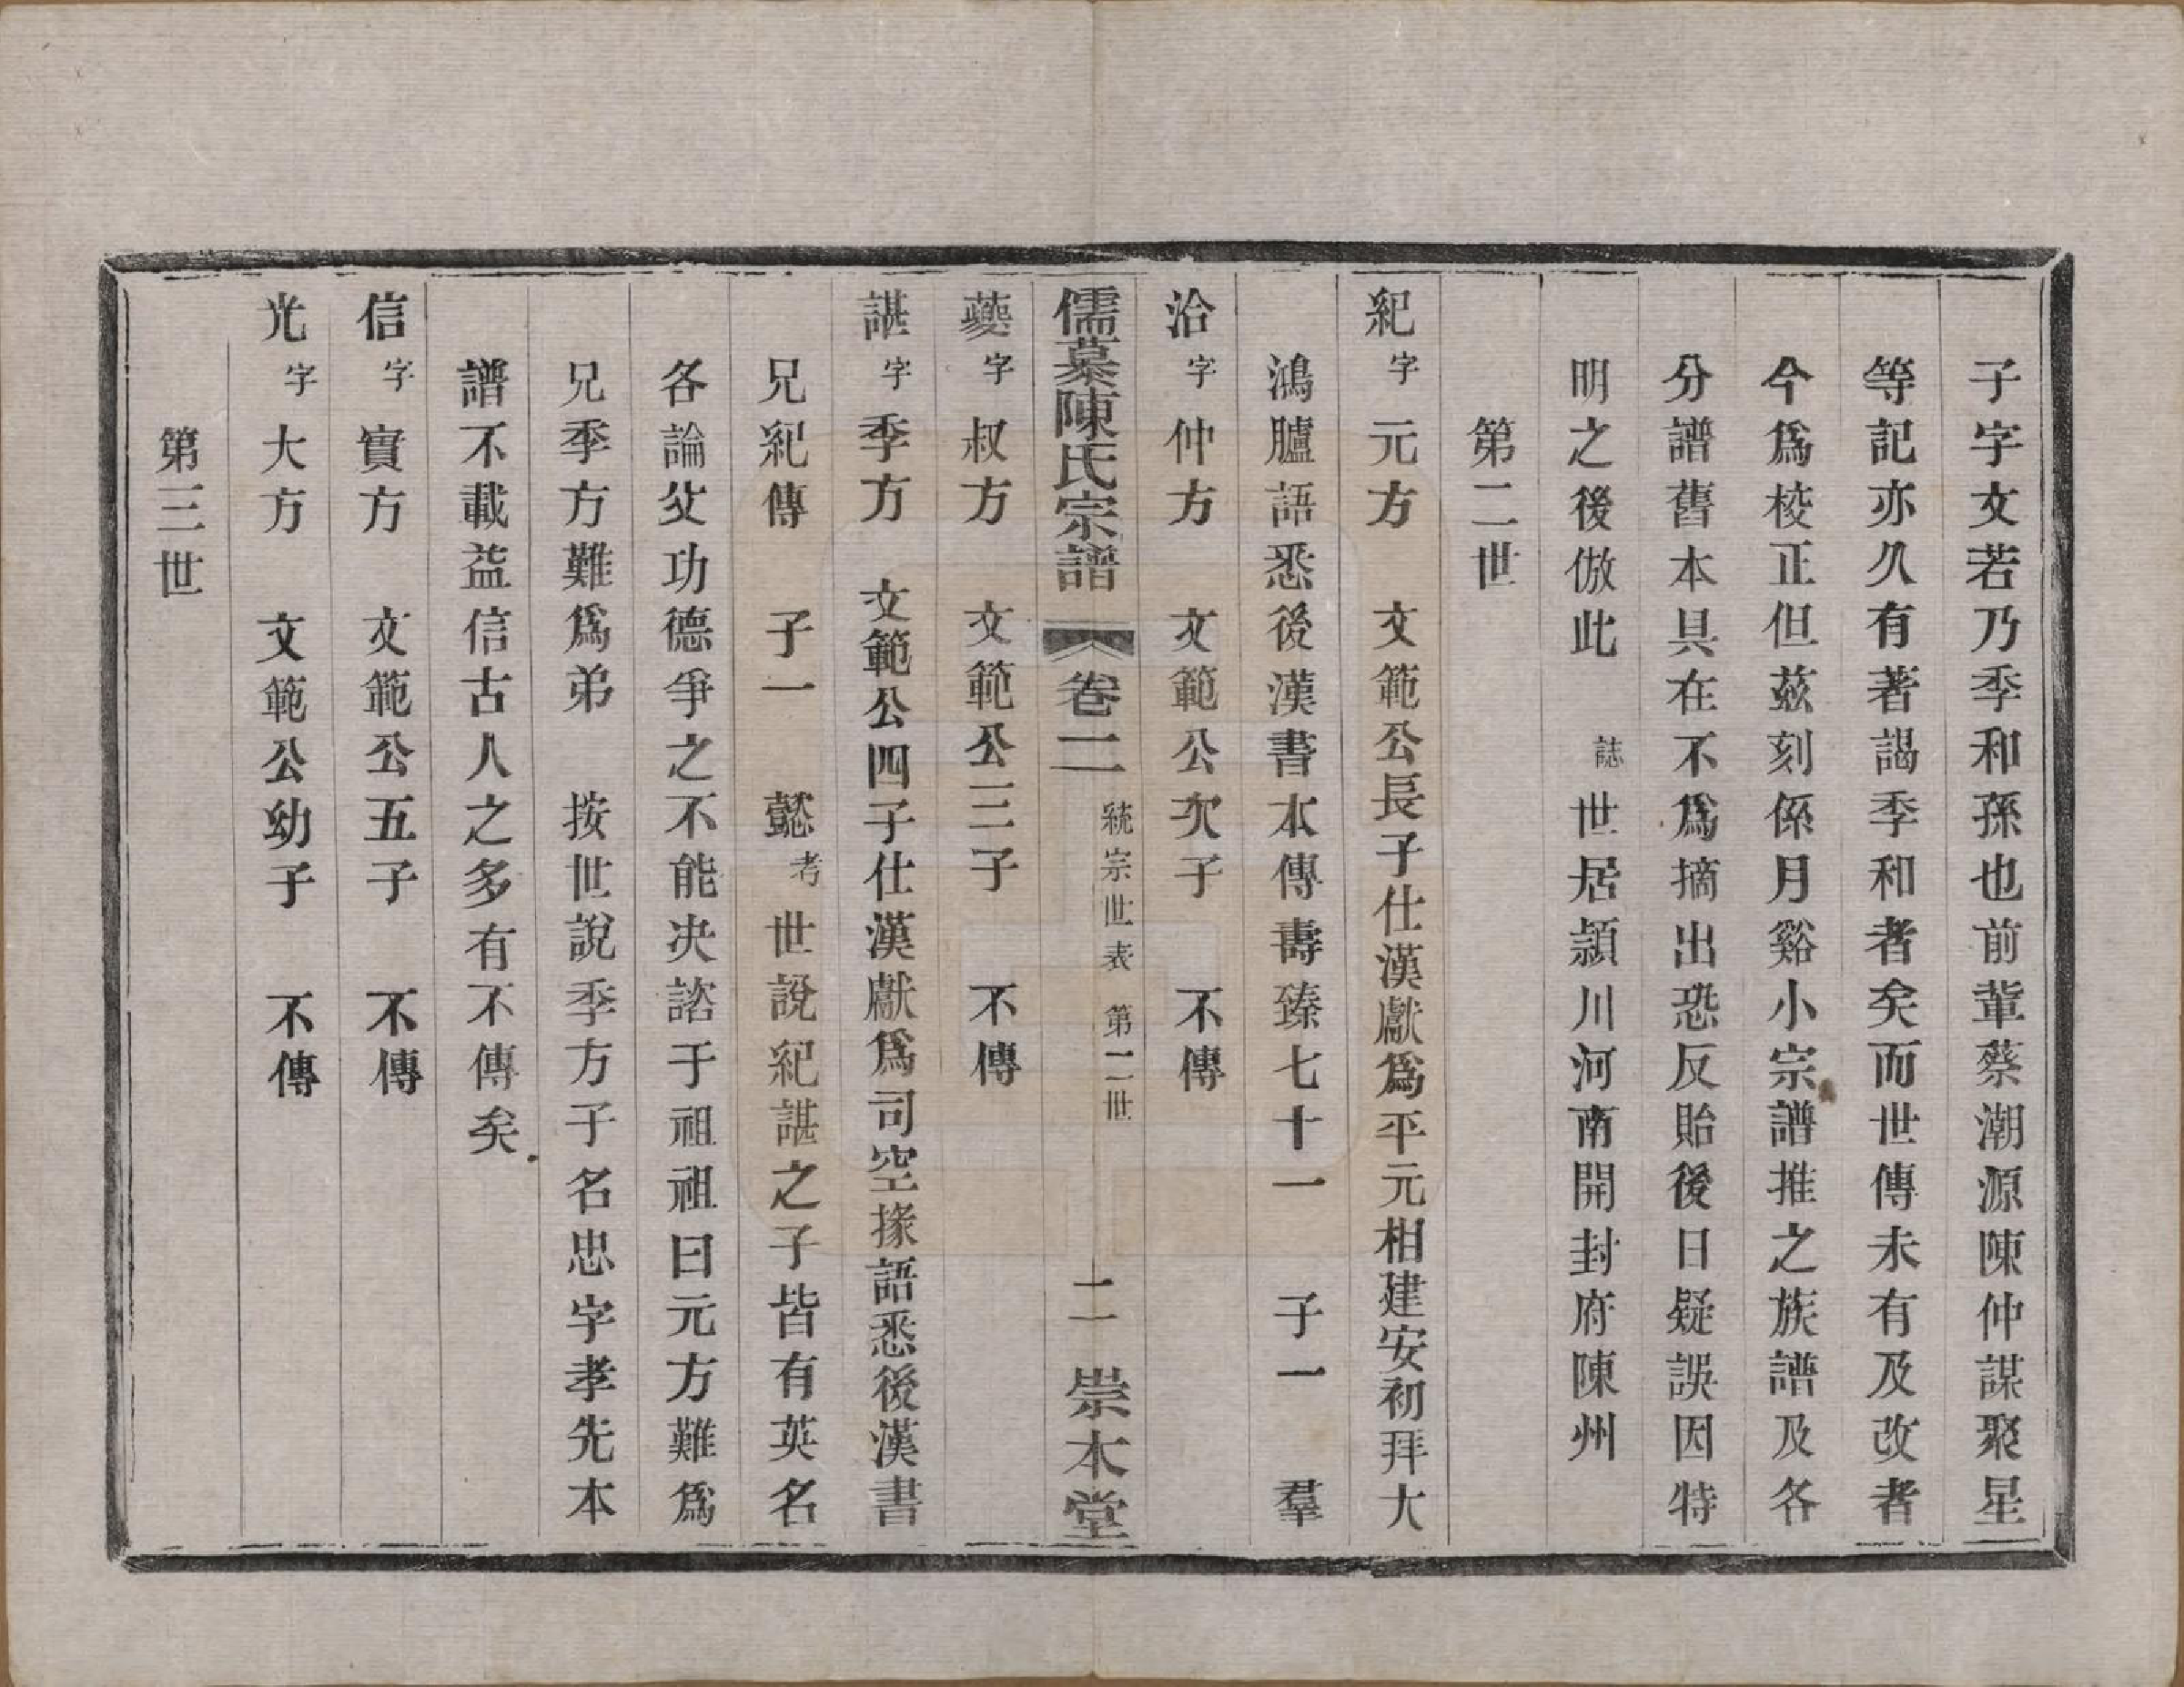 子字文若乃季和孫也前輩蔡潮源陳仲謀聚星
等記亦久有著謁季和者矣而世傳未有及改者
今爲校正但茲刻係月谿小宗譜推之族譜及各
分譜舊本具在不爲摘出恐反貽後日疑誤因特
明之後倣此　誌世居潁川河南開封府陳州
第二世
紀字元方　文範公長子仕漢獻爲平元相建安初拜大
鴻臚語悉後漢書本傳壽臻七十一　子一　羣
洽字仲方　文範公次子　不傳
儒慕陳氏宗譜　卷二　統宗世表　第二世　二　崇本堂
叔方　文範公三子　不傳
諶字季方　文範公四子仕漢獻爲司空掾語悉後漢書
兄紀傳　子一　懿考世說紀諶之子皆有英名
各論父功德爭之不能决諮于祖祖曰元方難爲
兄季方難爲弟　按世說季方子名忠字孝先本
譜不載益信古人之多有不傳矣
信字實方　文範公五子　不傳
光字大方　文範公幼子　不傳
第三世